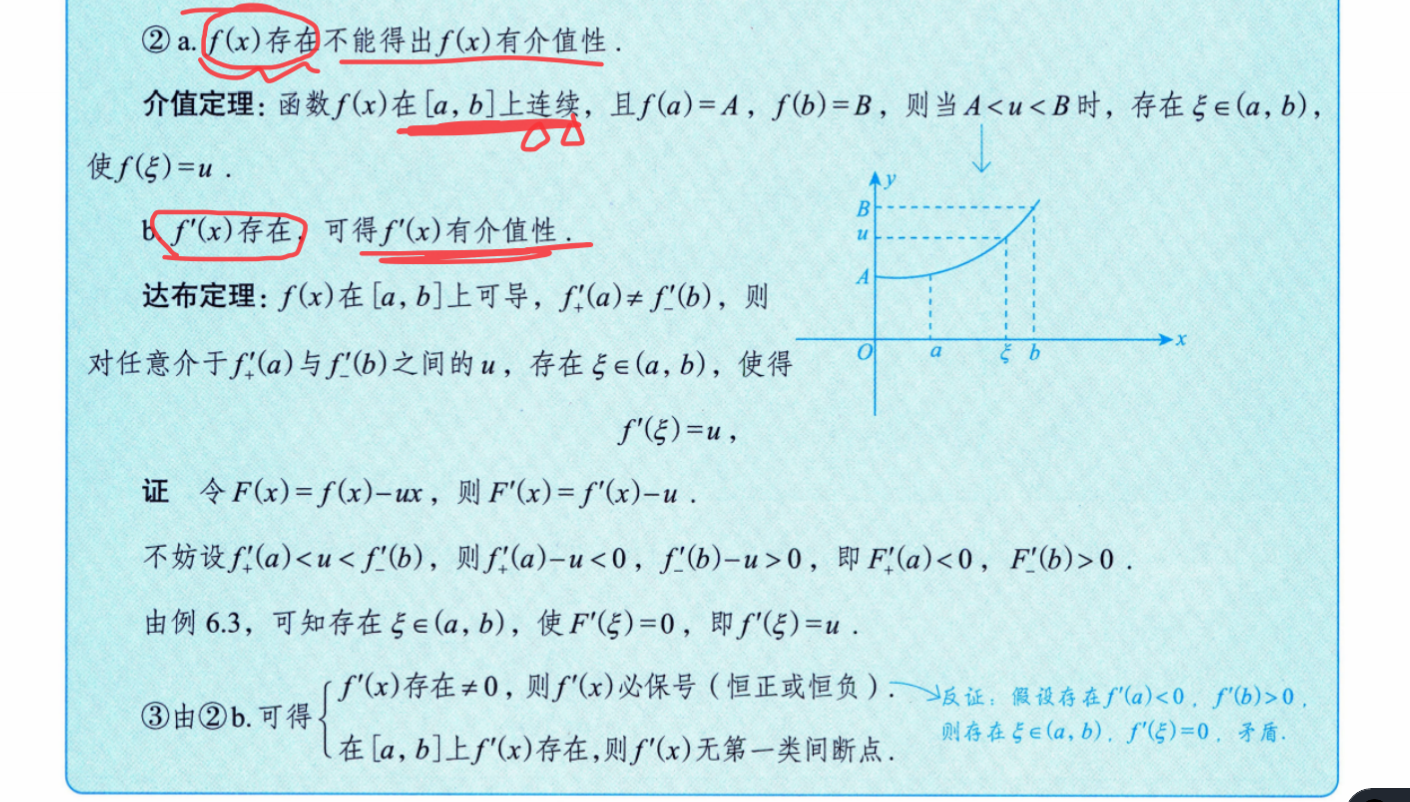 ② a. f(x)存在不能得出f(x)有介值性.
介值定理: 函数f(x)在[a, b]上连续, 且f(a)=A, f(b)=B, 则当A<u<B时, 存在ξ∈(a, b),
使f(ξ)=u.
b. f′(x)存在, 可得f′(x)有介值性.
达布定理: f(x)在[a, b]上可导, f′₊(a)≠f′₋(b), 则
对任意介于f′₊(a)与f′₋(b)之间的u, 存在ξ∈(a, b), 使得
f′(ξ)=u,
y
B
u
A
O a ξ b x
证 令F(x)=f(x)−ux, 则F′(x)=f′(x)−u.
不妨设f′₊(a)<u<f′₋(b), 则f′₊(a)−u<0, f′₋(b)−u>0, 即F′₊(a)<0, F′₋(b)>0.
由例 6.3, 可知存在ξ∈(a, b), 使F′(ξ)=0, 即f′(ξ)=u.
③由②b.可得
f′(x)存在≠0, 则f′(x)必保号(恒正或恒负).
在[a, b]上f′(x)存在,则f′(x)无第一类间断点.
反证: 假设存在f′(a)<0, f′(b)>0,
则存在ξ∈(a, b), f′(ξ)=0, 矛盾.